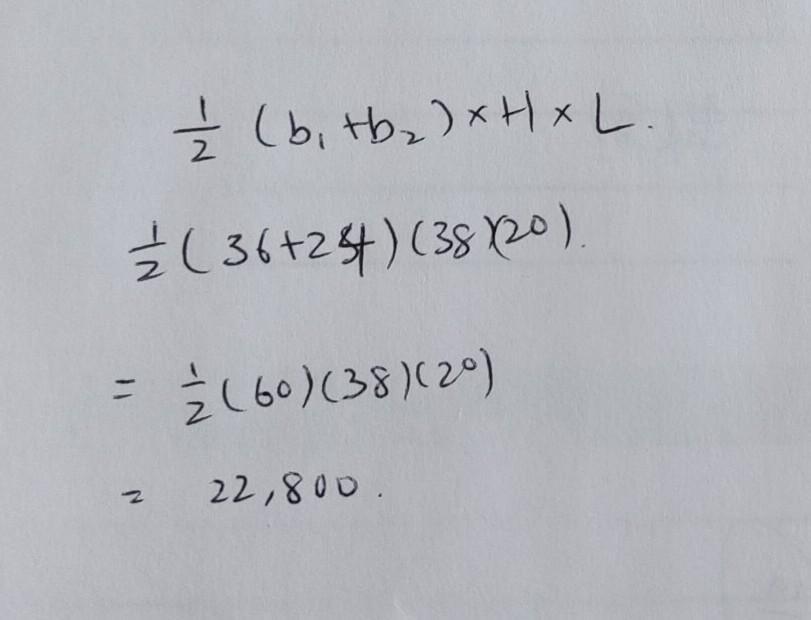 1/2 (b₁+b₂)×H×L.
1/2 (36+24)(38)(20).
= 1/2 (60)(38)(20)
= 22,800.